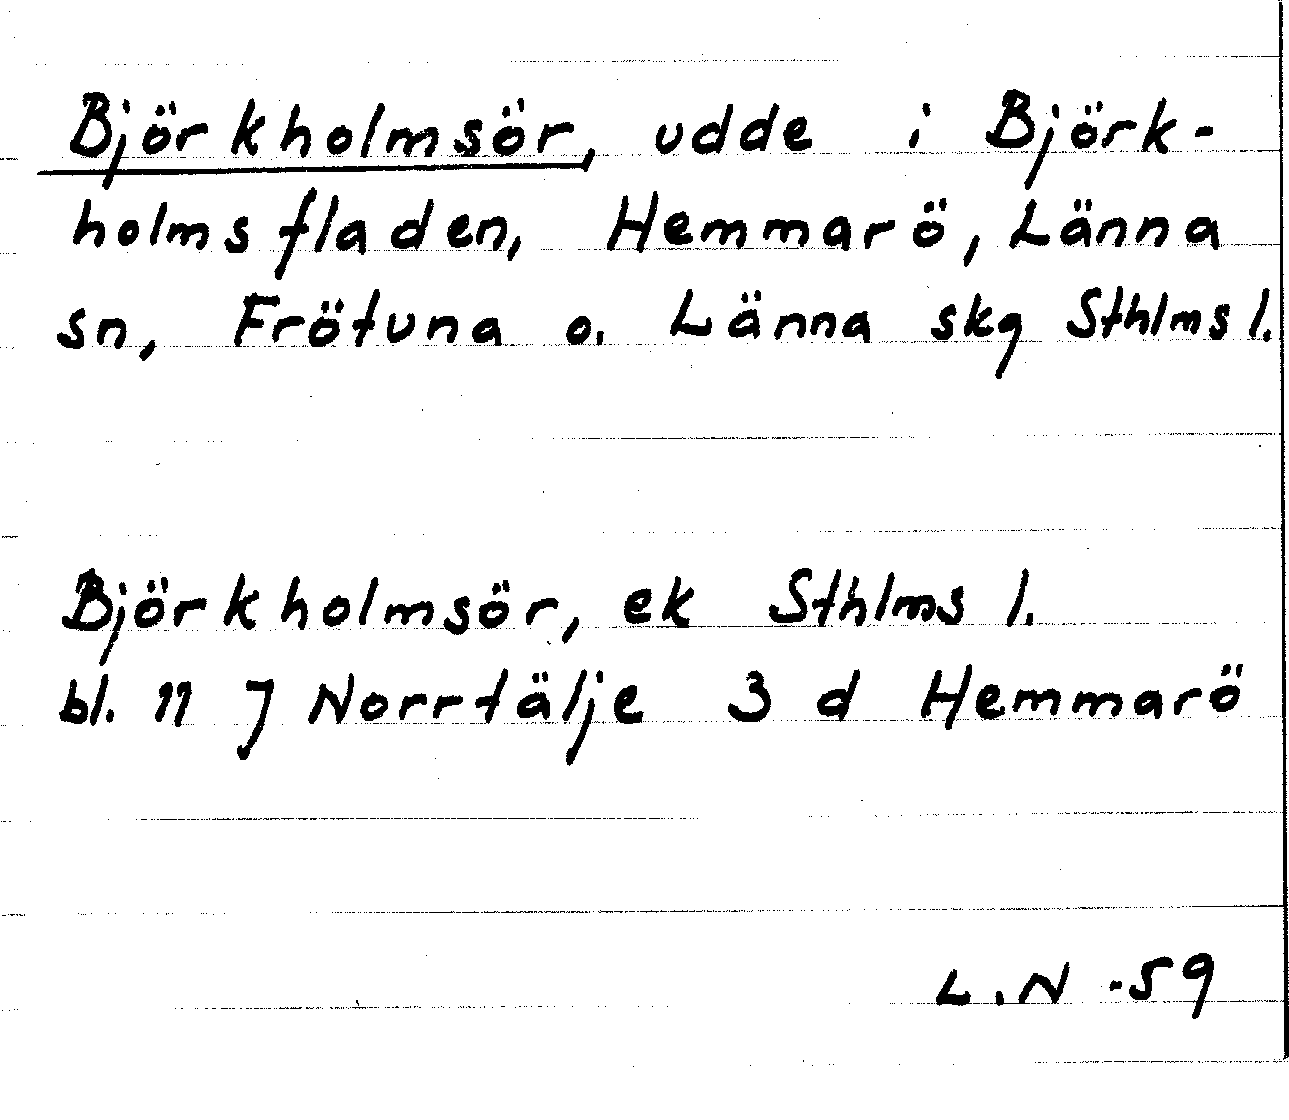 Björkholmsör, udde i Björk-
holmsfladen, Hemmarö, Länna
sn, Frötuna o. Länna skg Sthlms l.
Björkholmsör, ek Sthlms l.
bl. 11 J Norrtälje 3 d Hemmarö
L.N -59